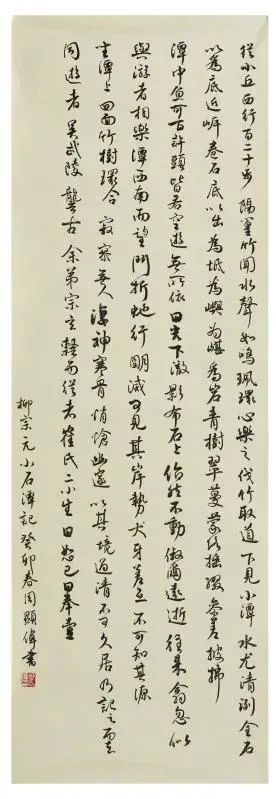 從小丘西行百二十步隔篁竹聞水聲如鳴珮環心樂之伐竹取道下見小潭水尤清冽全石
以為底近岸卷石底以出為坻為嶼為嵁為岩青樹翠蔓蒙絡搖綴參差披拂
潭中魚可百許頭皆若空遊無所依日光下澈影布石上佁然不動俶爾遠逝往來翕忽似
與游者相樂潭西南而望鬥折蛇行明滅可見其岸勢犬牙差互不可知其源
坐潭上四面竹樹環合寂寥無人凄神寒骨悄愴幽邃以其境過清不可久居乃記之而去
同遊者吳武陵龔古余弟宗玄隸而從者崔氏二小生曰恕己曰奉壹
柳宗元小石潭記癸卯春周顯偉書